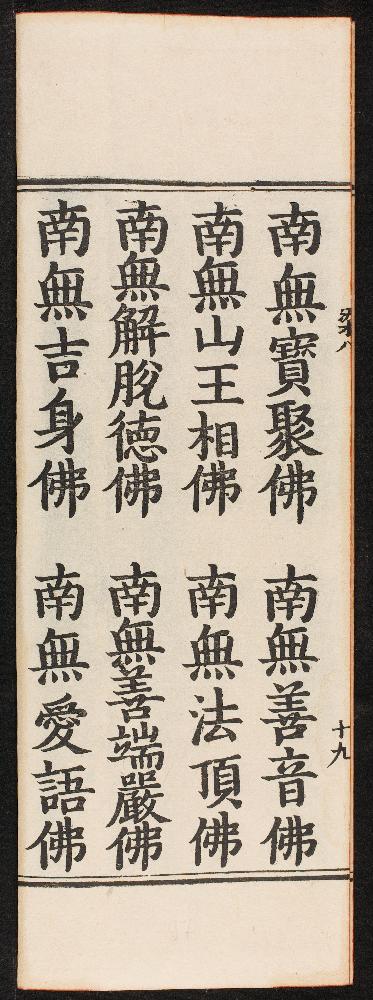 南無寶聚佛 南無善音佛
南無山王相佛 南無法頂佛
南無解脫德佛 南無善端嚴佛
南無吉身佛 南無愛語佛
十九